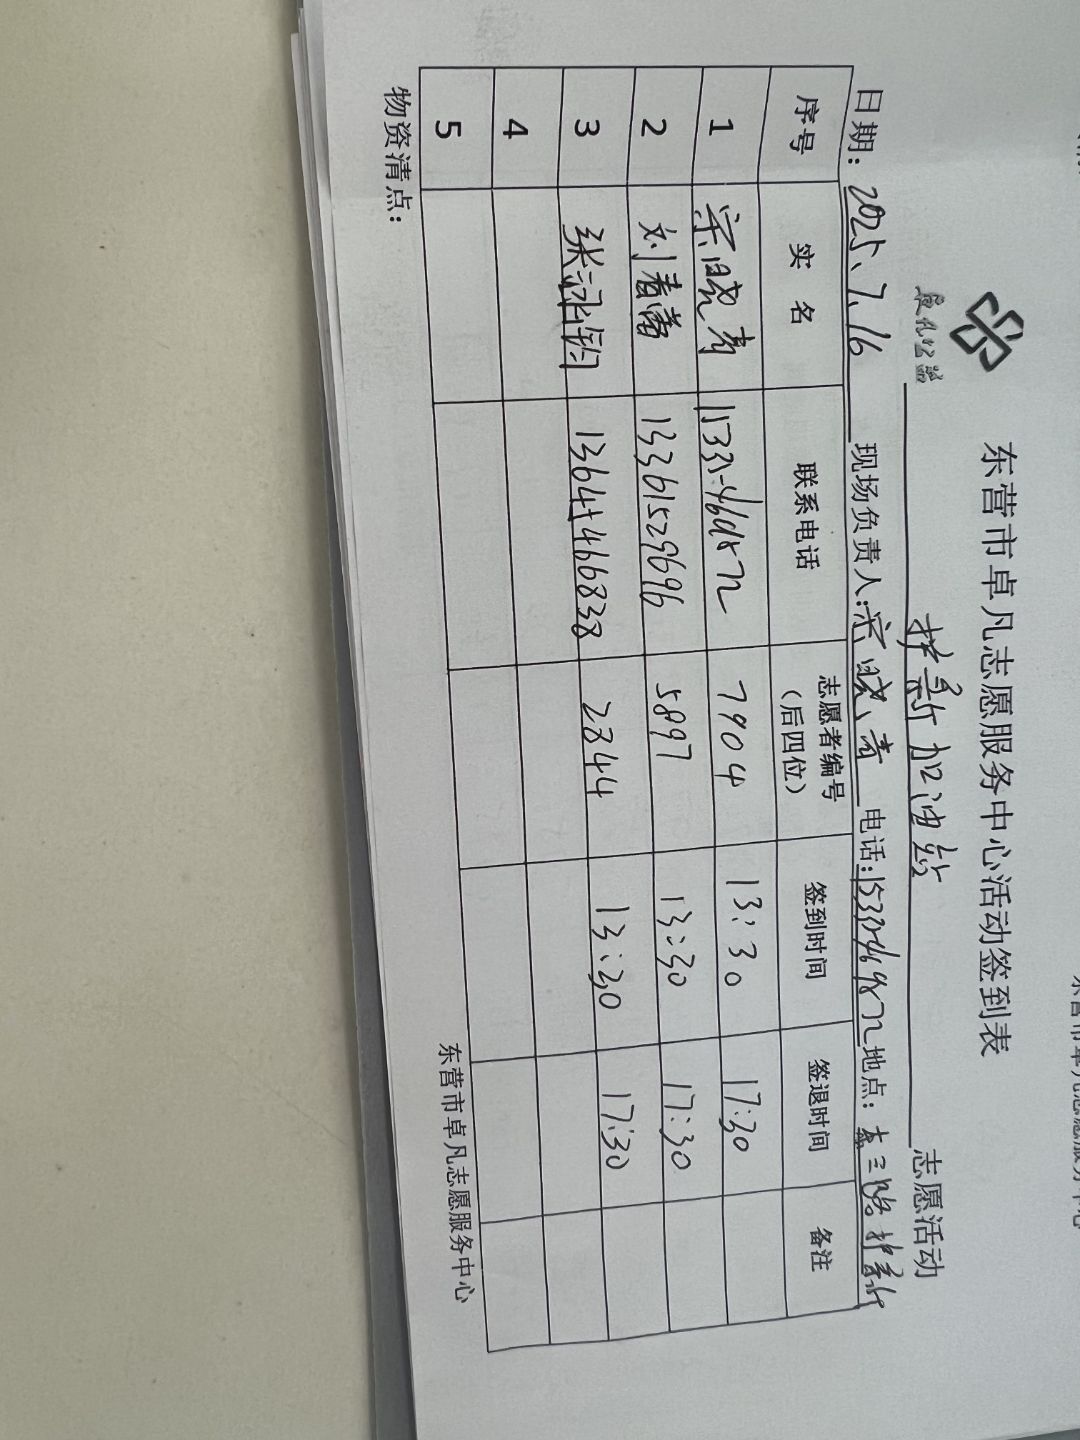 东营市卓凡志愿服务中心活动签到表
護新加油站 志愿活动
日期：2025、7、16 现场负责人：宗晓青 电话： 地点：
序号 实 名 联系电话 志愿者编号（后四位） 签到时间 签退时间 备注
1 宗晓青 7904 13:30 17:30
2 刘春蕾 13361529696 5897 13:30 17:30
3 13644466838 2844 13:30 17:30
4
5
物资清点：
东营市卓凡志愿服务中心